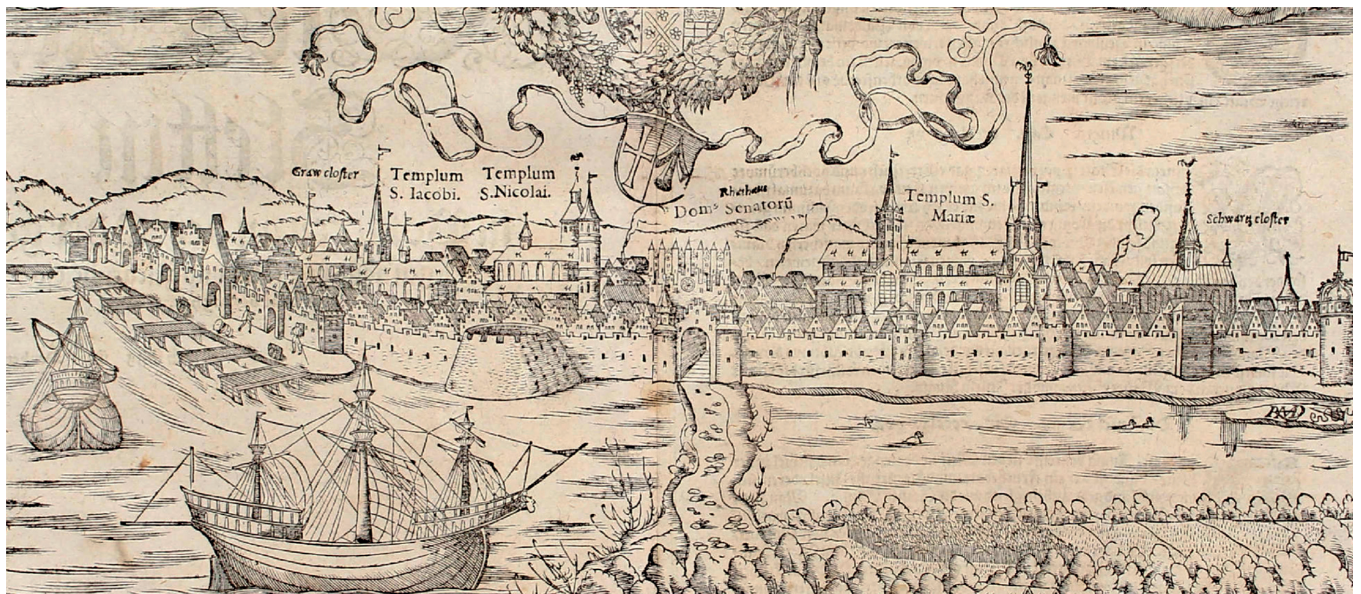 Graw closter
Templum
S. Iacobi.
Templum
S.Nicolai.
Rhathaus
Domꝰ Senatorū
Templum S.
Mariæ
Schwartz closter